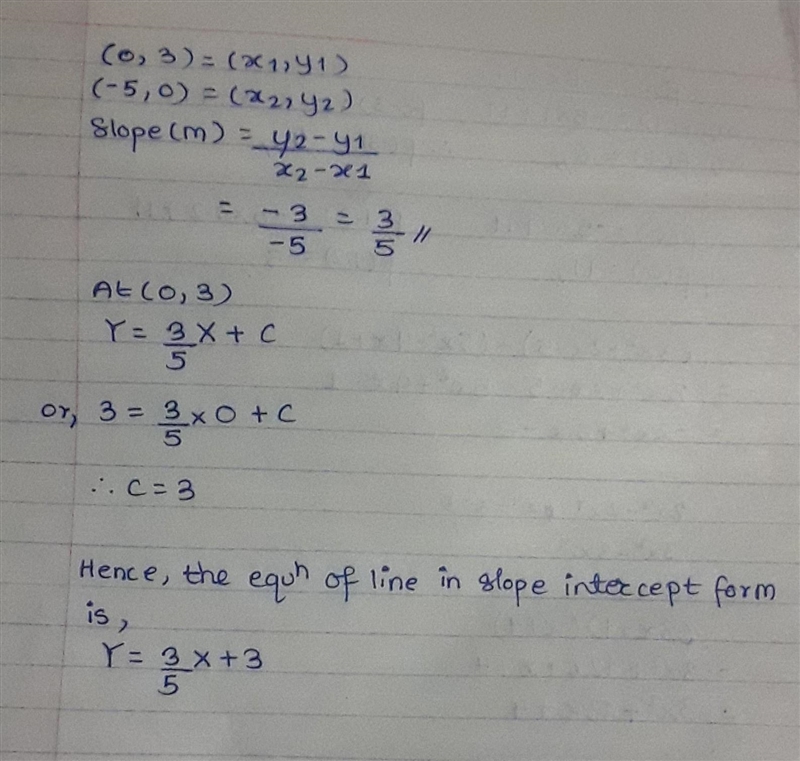 (0, 3) = (x1, y1)
(-5, 0) = (x2, y2)
Slope (m) = y2 - y1 / x2 - x1
= -3 / -5 = 3/5 //
At (0, 3)
Y = 3/5 X + C
or, 3 = 3/5 × 0 + C
∴ C = 3
Hence, the equⁿ of line in slope intercept form
is,
Y = 3/5 X + 3